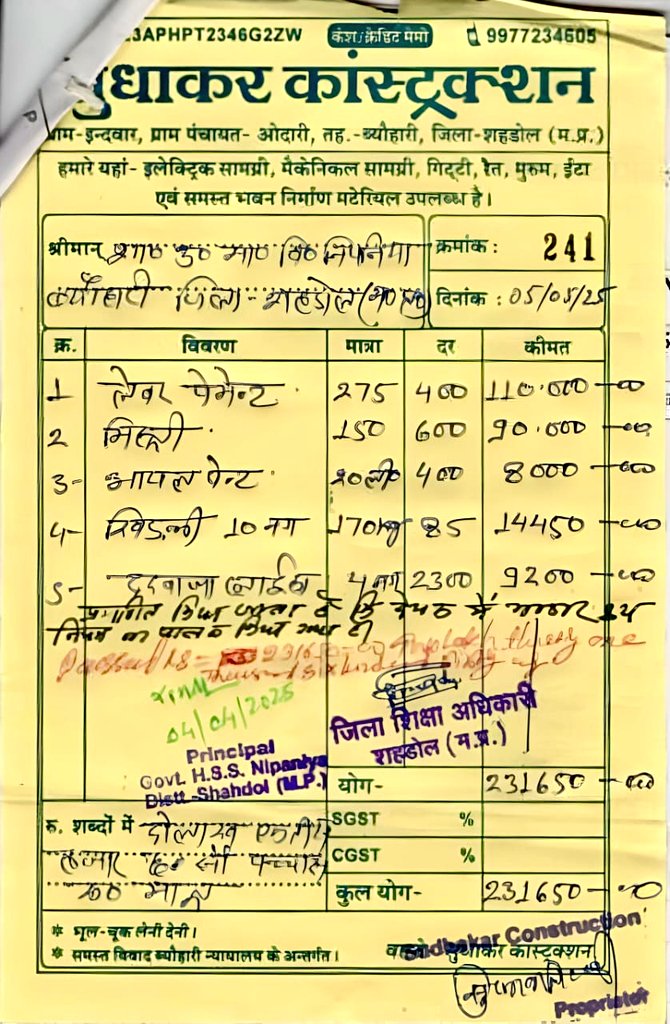 3APHPT2346G2ZW कैश/क्रेडिट मेमो 9977234605
सुधाकर कांस्ट्रक्शन
ग्राम-इन्दवार, ग्राम पंचायत- ओदारी, तह.-ब्यौहारी, जिला-शहडोल (म.प्र.)
हमारे यहां- इलेक्ट्रिक सामग्री, मैकेनिकल सामग्री, गिट्टी, रेत, मुरुम, ईटा
एवं समस्त भवन निर्माण मटेरियल उपलब्ध है।
श्रीमान् शा० उ० मा० वि० निपनिया क्रमांक : 241
ब्यौहारी जिला शहडोल (म०प्र०) दिनांक : 05/05/25
क्र. विवरण मात्रा दर कीमत
1 लेबर पेमेन्ट 275 400 110.000-00
2 मिस्त्री 150 600 90.000-00
3- आयल पेन्ट 20ली० 400 8000-00
4- खिड़की 10 नग 170kg 85 14450-00
5- दरवाजा 4 नग 2300 9200-00
प्रमाणित किया जाता है कि में भण्डार क्रय
नियम का पालन किया गया है।
Passed RS = 231650
04/04/2025
Principal
Govt. H.S.S. Nipaniya
Distt.-Shahdol (M.P.)
जिला शिक्षा अधिकारी
शहडोल (म.प्र.)
योग- 231650-00
SGST %
CGST %
रु. शब्दों में दो लाख एकतीस
हजार छः सौ पच्चास
रु० मात्र
कुल योग- 231650-00
* भूल-चूक लेनी देनी।
* समस्त विवाद ब्यौहारी न्यायालय के अन्तर्गत।
Sudhakar Construction
वास्ते सुधाकर कांस्ट्रक्शन
Proprietor